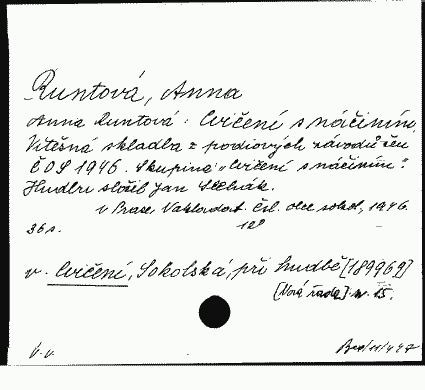 Runtová, Anna
Anna Runtová: Cvičení s náčiním.
Vítězná skladba z pódiových závodů žen
ČOS 1946. Skupina „Cvičení s náčiním“.
Hudbu složil Jan
v Praze, Naklad. Čsl. obce sokol., 1946.
36 s. 12°
v. Cvičení, Sokolská, při hudbě [189969]
[Nová řada] n. 15.
V. v.